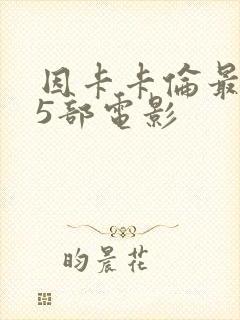 因卡卡倫最
5部電影
昀晨花